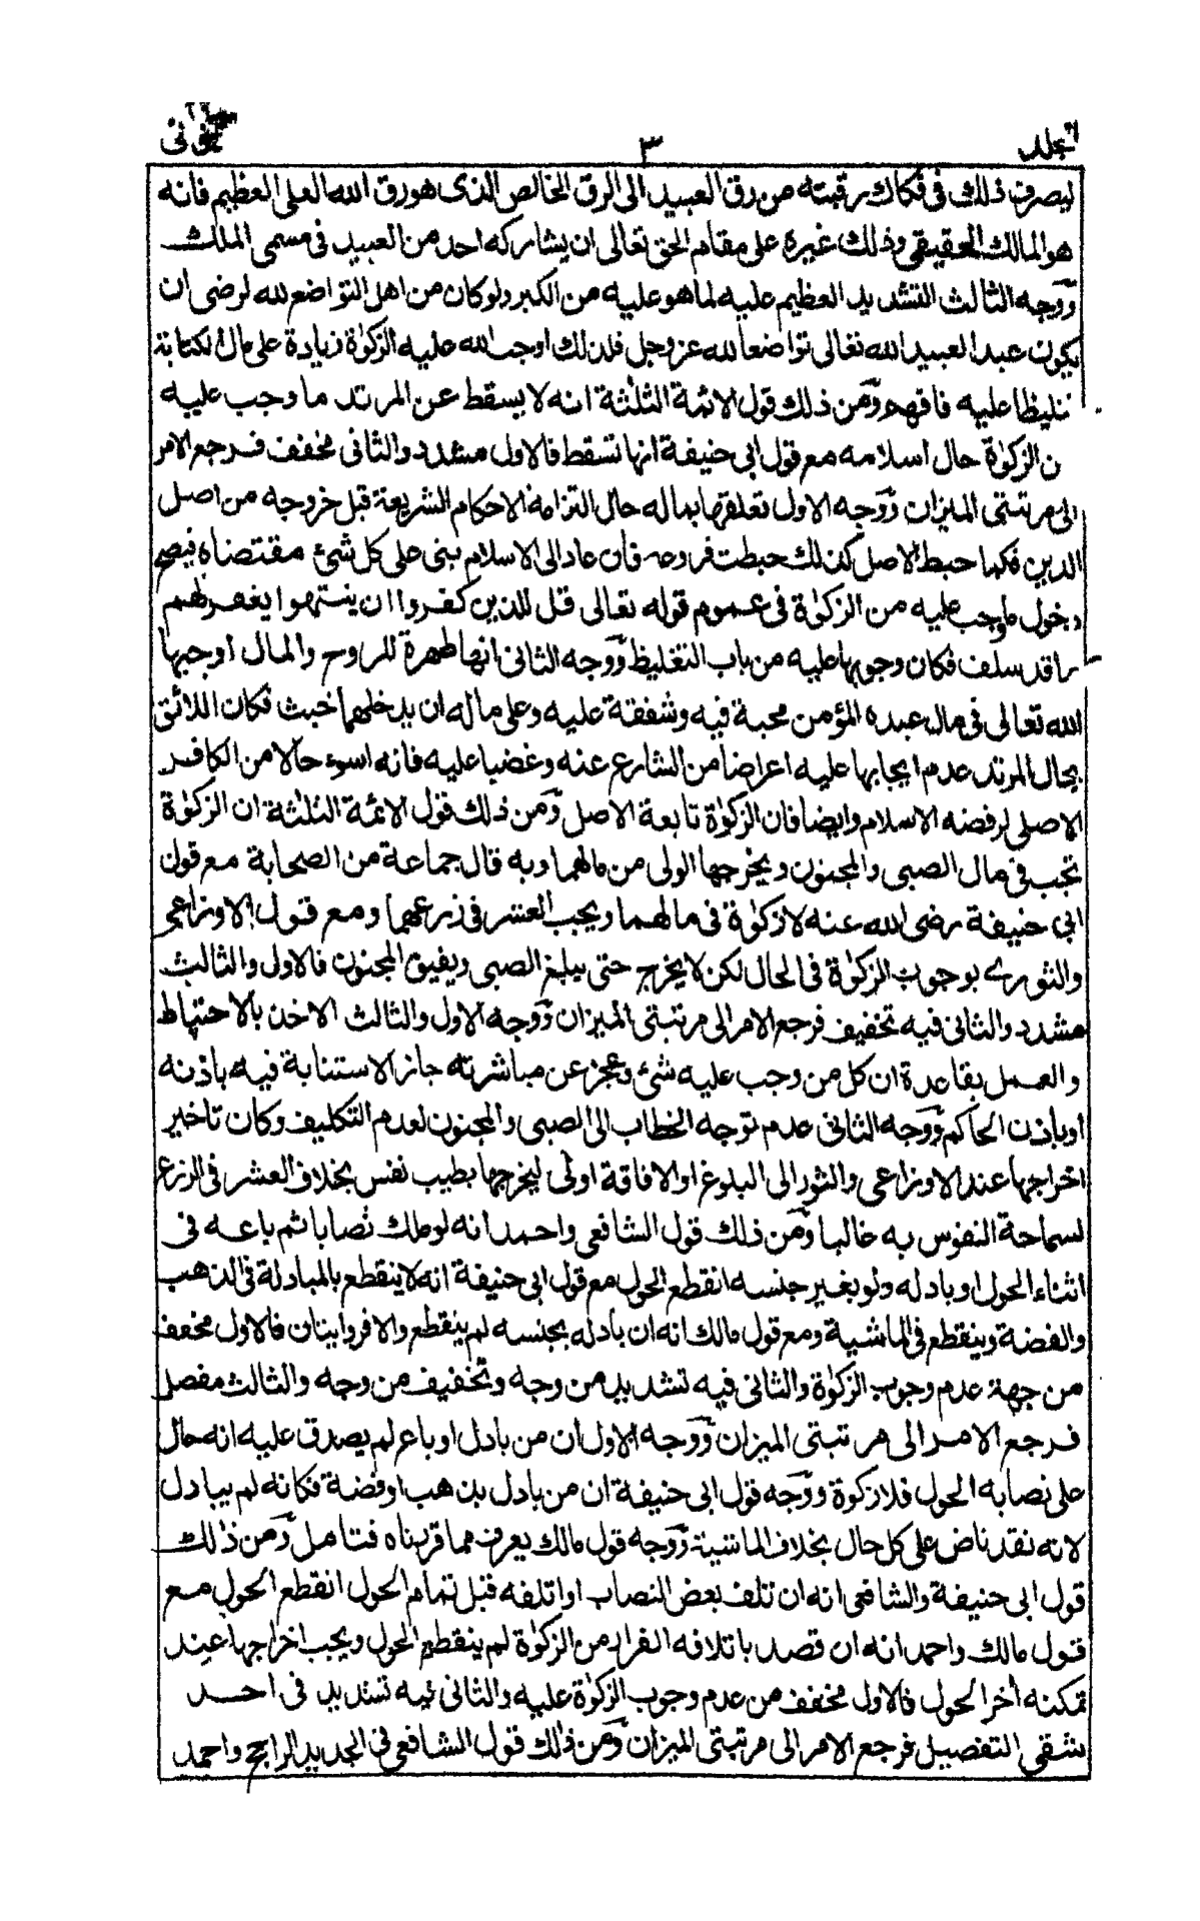 ٣
ليصرف ذلك في فكاك رقبته من رق العبيد الى الرق الخالص الذى هو رق الله العلى العظيم فانه
هو المالك الحقيقى وذلك غيرة على مقام الحق تعالى ان يشاركه احد من العبيد فى مسمى الملك
ووجه الثالث التشديد العظيم عليه لما هو عليه من الكبر ولو كان من اهل التواضع لله لرضى ان
يكون عبدا لعبيد الله تعالى تواضعا لله عز وجل فلذلك اوجب الله عليه الزكوٰة زيادة على مال الكتابة
تغليظا عليه فافهم ومن ذلك قول الائمة الثلثة انه لا يسقط عن المرتد ما وجب عليه
ن الزكوٰة حال اسلامه مع قول ابى حنيفة انها تسقط فالاول مشدد والثانى مخفف فرجع الامر
الى مرتبتى الميزان ووجه الاول تعلقها بماله حال التزامه لاحكام الشريعة قبل خروجه من اصل
الدين فكما حبط الاصل كذلك حبطت فروعه فان عاد الى الاسلام بنى على كل شئ مقتضاه فيصح
دخول ما وجب عليه من الزكوٰة فى عموم قوله تعالى قل للذين كفروا ان ينتهوا يغفر لهم
ما قد سلف فكان وجوبها عليه من باب التغليظ ووجه الثانى انها طهرة للروح والمال اوجبها
الله تعالى فى مال عبده المؤمن محبة فيه وشفقة عليه وعلى ماله ان يدخلهما خبث فكان اللائق
بحال المرتد عدم ايجابها عليه اعراضا من الشارع عنه وغضبا عليه فانه اسوء حالا من الكافر
الاصلى لرفضه الاسلام وايضا فان الزكوٰة تابعة الاصل ومن ذلك قول الائمة الثلثة ان الزكوٰة
تجب فى مال الصبى والمجنون ويخرجها الولى من مالهما وبه قال جماعة من الصحابة مع قول
ابى حنيفة رضى الله عنه لا زكوٰة فى مالهما ويجب العشر فى زرعهما ومع قول الاوزاعى
والثورے بوجوب الزكوٰة فى الحال لكن لا يخرج حتى يبلغ الصبى ويفيق المجنون فالاول والثالث
مشدد والثانى فيه تخفيف فرجع الامر الى مرتبتى الميزان ووجه الاول والثالث الاخذ بالاحتياط
والعمل بقاعدة ان كل من وجب عليه شئ وعجز عن مباشرته جاز الاستنابة فيه باذنه
او باذن الحاكم ووجه الثانى عدم توجه الخطاب الى الصبى والمجنون لعدم التكليف وكان تاخير
اخراجها عند الاوزاعى والثورى الى البلوغ او الافاقة اولى ليخرجها بطيب نفس بخلاف العشر فى الزرع
لسماحة النفوس به غالبا ومن ذلك قول الشافعى واحمد انه لو ملك نصابا ثم باعه فى
اثناء الحول او بادله ولو بغير جنسه انقطع الحول مع قول ابى حنيفة انه لا ينقطع بالمبادلة فى الذهب
والفضة وينقطع فى الماشية ومع قول مالك انه ان بادله بجنسه لم ينقطع والا فروايتان فالاول مخفف
من جهة عدم وجوب الزكوٰة والثانى فيه تشديد من وجه وتخفيف من وجه والثالث مفصل
فرجع الامر الى مرتبتى الميزان ووجه الاول ان من بادل او باع لم يصدق عليه انه حال
على نصابه الحول فلا زكوة ووجه قول ابى حنيفة ان من بادل بذهب او فضة فكانه لم يبادل
لانه نقد ناض على كل حال بخلاف الماشية ووجه قول مالك يعرف مما قررناه فتامل ومن ذلك
قول ابى حنيفة والشافعى انه ان تلف بعض النصاب او اتلفه قبل تمام الحول انقطع الحول مع
قول مالك واحمد انه ان قصد باتلافه الفرار من الزكوٰة لم ينقطع الحول ويجب اخراجها عند
تمكنه اخر الحول فالاول مخفف من عدم وجوب الزكوٰة عليه والثانى فيه تشديد فى احد
شقى التفصيل فرجع الامر الى مرتبتى الميزان ومن ذلك قول الشافعى فى الجديد الراجح واحمد